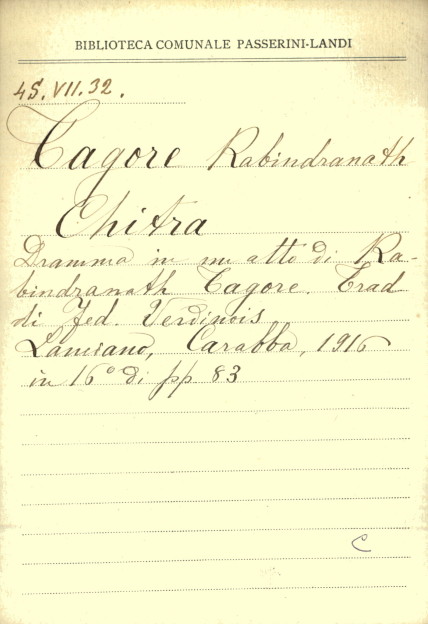 BIBLIOTECA COMUNALE PASSERINI-LANDI
4S.VII.32.
Tagore Rabindranath
Chitra
Dramma in un atto di Ra-
bindranath Tagore. Trad
di Fed. Verdinois
Lanciano, Carabba, 1916
in 16° di pp 83
C